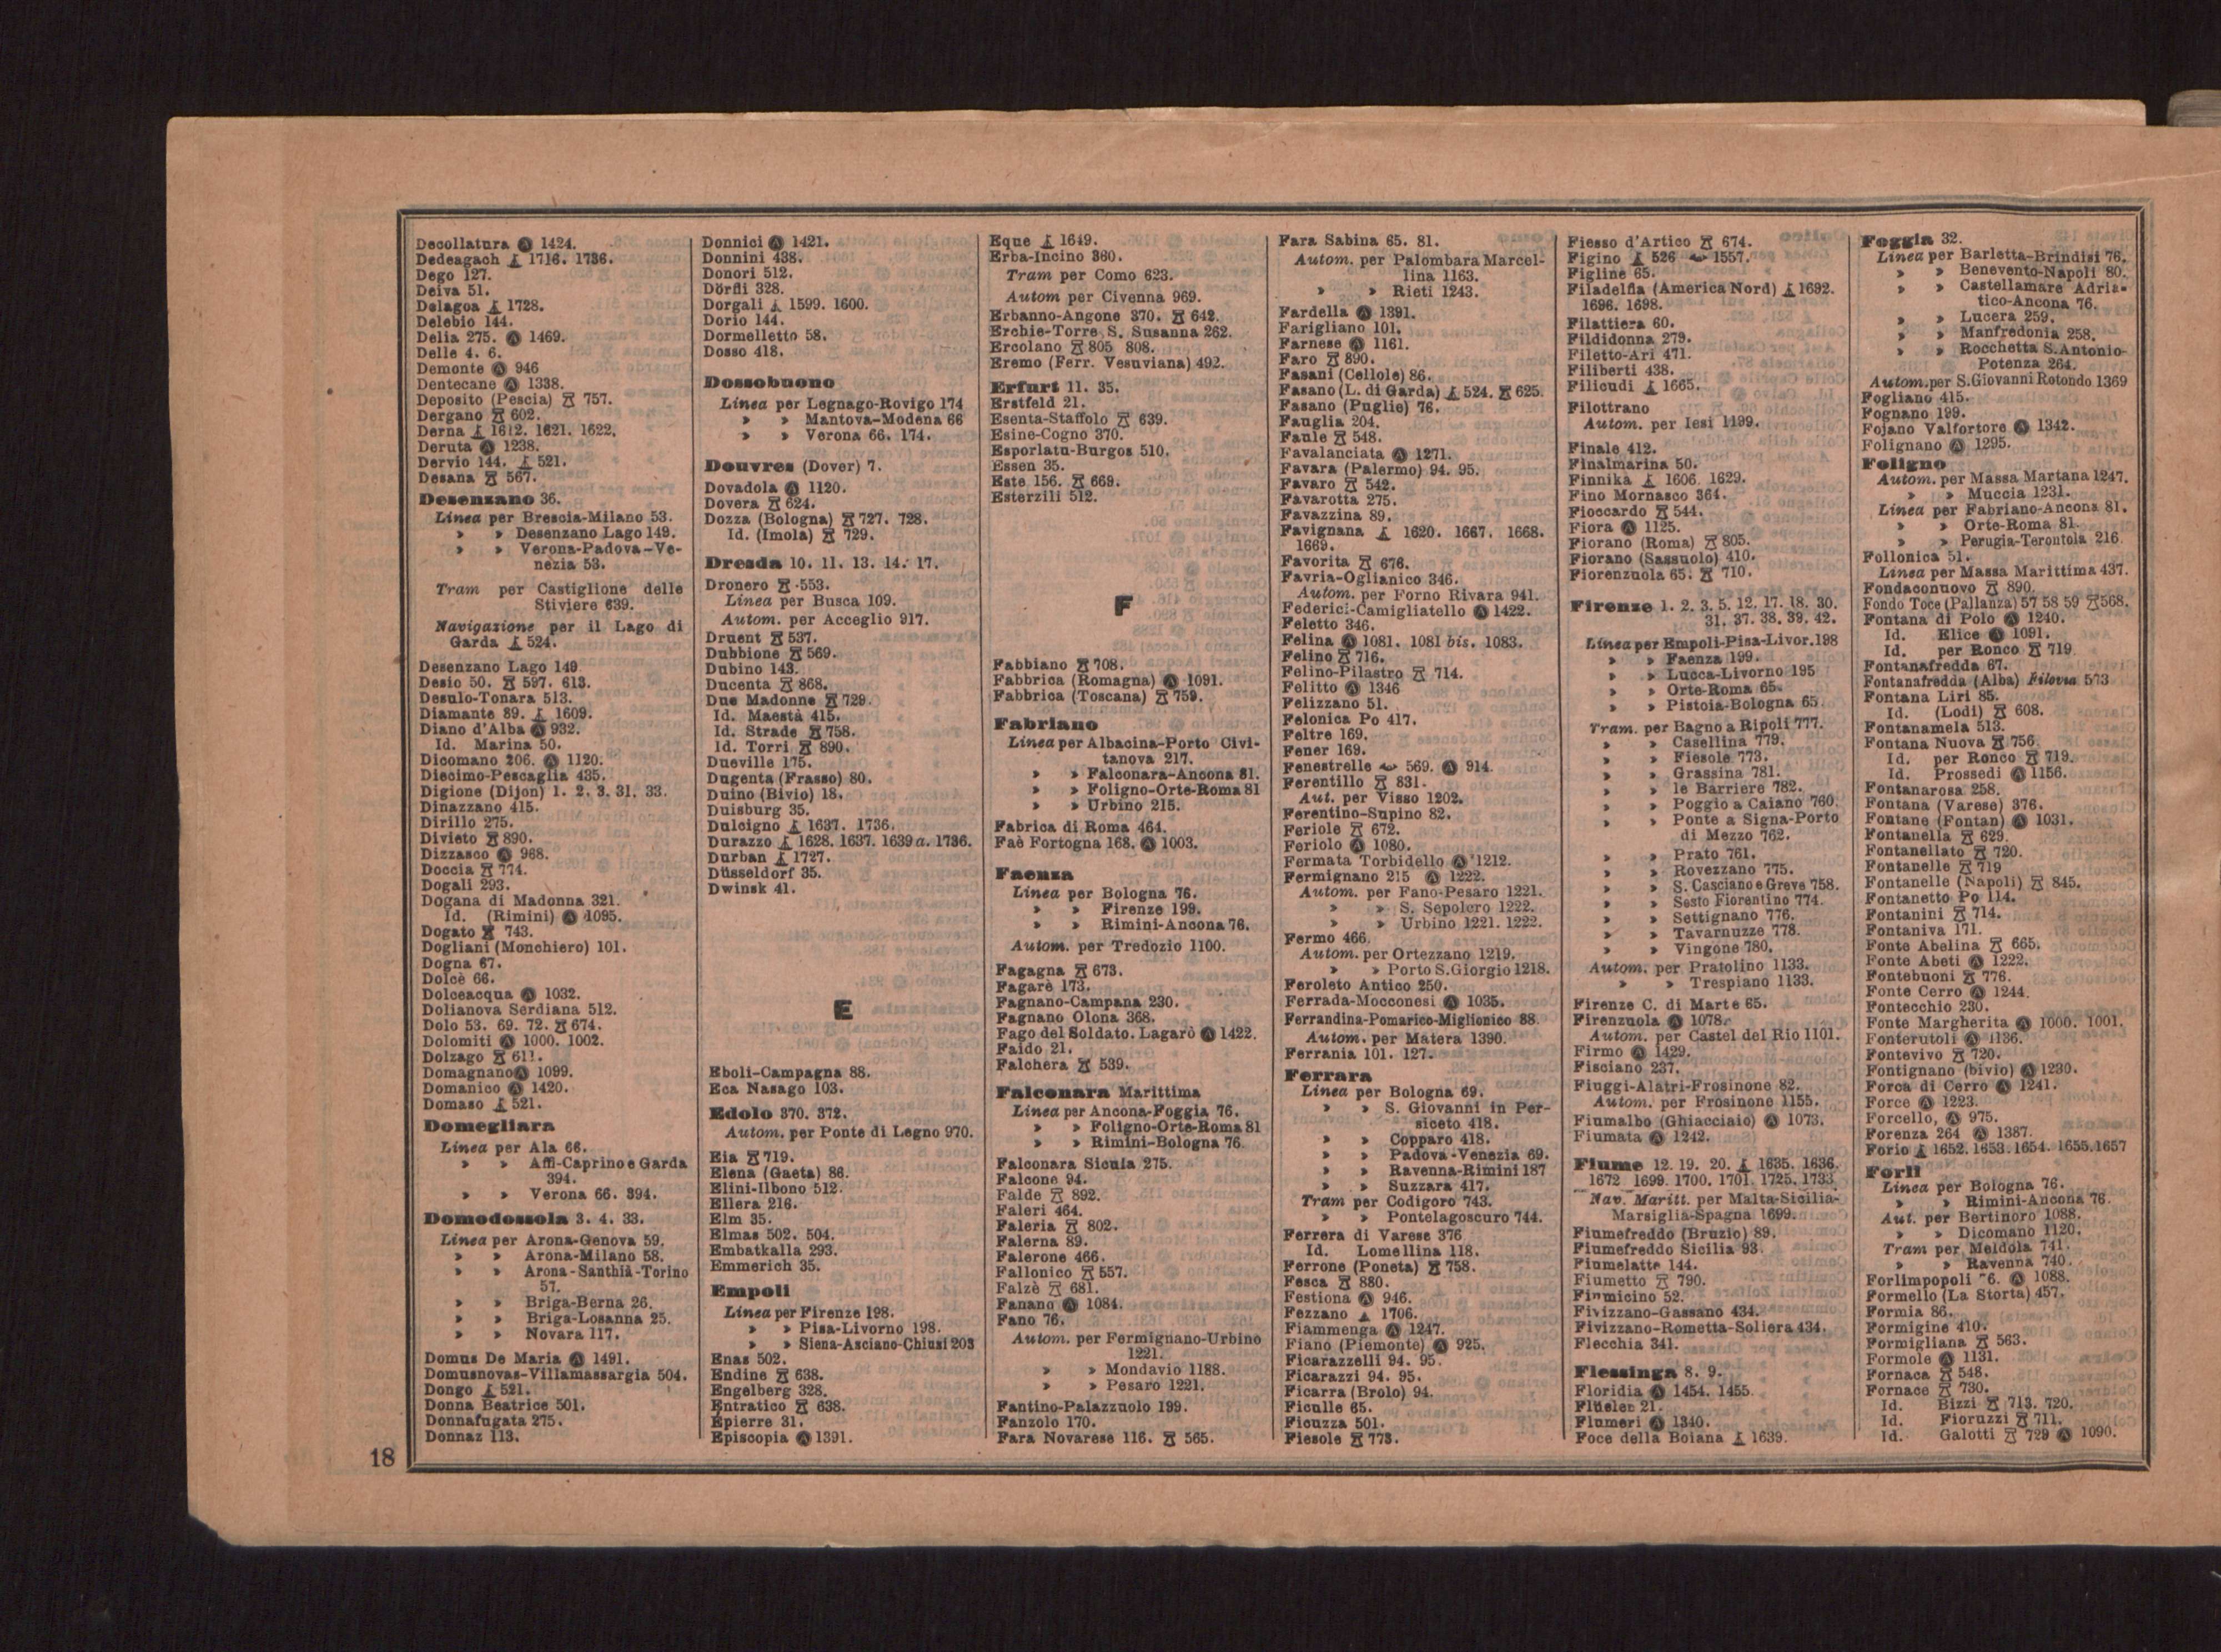 Decollatura Ⓐ 1424.
Dedeagach 1716. 1736.
Dego 127.
Deiva 51.
Delagoa 1728.
Delebio 144.
Delia 275. Ⓐ 1469.
Delle 4. 6.
Demonte Ⓐ 946
Dentecane Ⓐ 1338.
Deposito (Pescia) 757.
Dergano 602.
Derna 1612. 1621. 1622.
Deruta Ⓐ 1238.
Dervio 144. 521.
Desana 567.
Desenzano 36.
Linea per Brescia-Milano 53.
» » Desenzano Lago 149.
» » Verona-Padova-Ve-
nezia 53.
Tram per Castiglione delle
Stiviere 639.
Navigazione per il Lago di
Garda 524.
Desenzano Lago 149.
Desio 50. 597. 613.
Desulo-Tonara 513.
Diamante 89. 1609.
Diano d'Alba Ⓐ 932.
Id. Marina 50.
Dicomano 206. Ⓐ 1120.
Diecimo-Pescaglia 435.
Digione (Dijon) 1. 2. 3. 31. 33.
Dinazzano 415.
Dirillo 275.
Divieto 890.
Dizzasco Ⓐ 968.
Doccia 774.
Dogali 293.
Dogana di Madonna 321.
Id. (Rimini) Ⓐ 1095.
Dogato 743.
Dogliani (Monchiero) 101.
Dogna 67.
Dolcè 66.
Dolceacqua Ⓐ 1032.
Dolianova Serdiana 512.
Dolo 53. 69. 72. 674.
Dolomiti Ⓐ 1000. 1002.
Dolzago 611.
Domagnano Ⓐ 1099.
Domanico Ⓐ 1420.
Domaso 521.
Domegliara
Linea per Ala 66.
» » Affi-Caprino e Garda
394.
» » Verona 66. 394.
Domodossola 3. 4. 33.
Linea per Arona-Genova 59.
» » Arona-Milano 58.
» » Arona-Santhià-Torino
57.
» » Briga-Berna 26.
» » Briga-Losanna 25.
» » Novara 117.
Domus De Maria Ⓐ 1491.
Domusnovas-Villamassargia 504.
Dongo 521.
Donna Beatrice 501.
Donnafugata 275.
Donnaz 113.
Donnici Ⓐ 1421.
Donnini 438.
Donori 512.
Dörfli 328.
Dorgali 1599. 1600.
Dorio 144.
Dormelletto 58.
Dosso 418.
Dossobuono
Linea per Legnago-Rovigo 174
» » Mantova-Modena 66
» » Verona 66. 174.
Douvres (Dover) 7.
Dovadola Ⓐ 1120.
Dovera 624.
Dozza (Bologna) 727. 728.
Id. (Imola) 729.
Dresda 10. 11. 13. 14. 17.
Dronero 553.
Linea per Busca 109.
Autom. per Acceglio 917.
Druent 537.
Dubbione 569.
Dubino 143.
Ducenta 868.
Due Madonne 729.
Id. Maestà 415.
Id. Strade 758.
Id. Torri 890.
Dueville 175.
Dugenta (Frasso) 80.
Duino (Bivio) 18.
Duisburg 35.
Dulcigno 1637. 1736.
Durazzo 1628. 1637. 1639 a. 1736.
Durban 1727.
Düsseldorf 35.
Dwinsk 41.
E
Eboli-Campagna 88.
Eca Nasago 103.
Edolo 370. 372.
Autom. per Ponte di Legno 970.
Eia 719.
Elena (Gaeta) 86.
Elini-Ilbono 512.
Ellera 216.
Elm 35.
Elmas 502. 504.
Embatkalla 293.
Emmerich 35.
Empoli
Linea per Firenze 198.
» » Pisa-Livorno 198.
» » Siena-Asciano-Chiusi 203
Enas 502.
Endine 638.
Engelberg 328.
Entratico 638.
Épierre 31.
Episcopia Ⓐ 1391.
Eque 1649.
Erba-Incino 360.
Tram per Como 623.
Autom per Civenna 969.
Erbanno-Angone 370. 642.
Erchie-Torre S. Susanna 262.
Ercolano 805 808.
Eremo (Ferr. Vesuviana) 492.
Erfurt 11. 35.
Erstfeld 21.
Esenta-Staffolo 639.
Esine-Cogno 370.
Esporlatu-Burgos 510.
Essen 35.
Este 156. 669.
Esterzili 512.
F
Fabbiano 708.
Fabbrica (Romagna) Ⓐ 1091.
Fabbrica (Toscana) 759.
Fabriano
Linea per Albacina-Porto Civi-
tanova 217.
» » Falconara-Ancona 81.
» » Foligno-Orte-Roma 81
» » Urbino 215.
Fabrica di Roma 464.
Faè Fortogna 168. Ⓐ 1003.
Faenza
Linea per Bologna 76.
» » Firenze 199.
» » Rimini-Ancona 76.
Autom. per Tredozio 1100.
Fagagna 673.
Fagarè 173.
Fagnano-Campana 230.
Fagnano Olona 368.
Fago del Soldato. Lagarò Ⓐ 1422.
Faido 21.
Falchera 539.
Falconara Marittima
Linea per Ancona-Foggia 76.
» » Foligno-Orte-Roma 81
» » Rimini-Bologna 76
Falconara Sicula 275.
Falcone 94.
Falde 892.
Faleri 464.
Faleria 802.
Falerna 89.
Falerone 466.
Fallonico 557.
Falzè 681.
Fanano Ⓐ 1084.
Fano 76.
Autom. per Fermignano-Urbino
1221.
» » Mondavio 1188.
» » Pesaro 1221.
Fantino-Palazzuolo 199.
Fanzolo 170.
Fara Novarese 116. 565.
Fara Sabina 65. 81.
Autom. per Palombara Marcel-
lina 1163.
» » Rieti 1243.
Fardella Ⓐ 1391.
Farigliano 101.
Farnese Ⓐ 1161.
Faro 890.
Fasani (Cellole) 86.
Fasano (L. di Garda) 524. 625.
Fasano (Puglie) 76.
Fauglia 204.
Faule 548.
Favalanciata Ⓐ 1271.
Favara (Palermo) 94. 95.
Favaro 542.
Favarotta 275.
Favazzina 89.
Favignana 1620. 1667. 1668.
1669.
Favorita 676.
Favria-Oglianico 346.
Autom. per Forno Rivara 941.
Federici-Camigliatello Ⓐ 1422.
Feletto 346.
Felina Ⓐ 1081. 1081 bis. 1083.
Felino 716.
Felino-Pilastro 714.
Felitto Ⓐ 1346
Felizzano 51.
Felonica Po 417.
Feltre 169.
Fener 169.
Fenestrelle 569. Ⓐ 914.
Ferentillo 831.
Aut. per Visso 1202.
Ferentino-Supino 82.
Feriole 672.
Feriolo Ⓐ 1080.
Fermata Torbidello Ⓐ 1212.
Fermignano 215 Ⓐ 1222.
Autom. per Fano-Pesaro 1221.
» » S. Sepolcro 1222.
» » Urbino 1221. 1222.
Fermo 466.
Autom. per Ortezzano 1219.
» » Porto S.Giorgio 1218.
Feroleto Antico 250.
Ferrada-Mocconesi Ⓐ 1035.
Ferrandina-Pomarico-Miglionico 88.
Autom. per Matera 1390.
Ferrania 101. 127.
Ferrara
Linea per Bologna 69.
» » S. Giovanni in Per-
siceto 418.
» » Copparo 418.
» » Padova-Venezia 69.
» » Ravenna-Rimini 187
» » Suzzara 417.
Tram per Codigoro 743.
» » Pontelagoscuro 744.
Ferrera di Varese 376
Id. Lomellina 118.
Ferrone (Poneta) 758.
Fesca 880.
Festiona Ⓐ 946.
Fezzano 1706.
Fiammenga Ⓐ 1247.
Fiano (Piemonte) Ⓐ 925.
Ficarazzelli 94. 95.
Ficarazzi 94. 95.
Ficarra (Brolo) 94.
Ficulle 65.
Ficuzza 501.
Fiesole 773.
Fiesso d'Artico 674.
Figino 526 1557.
Figline 65.
Filadelfia (America Nord) 1692.
1696. 1698.
Filattiera 60.
Fildidonna 279.
Filetto-Ari 471.
Filiberti 438.
Filicudi 1665.
Filottrano
Autom. per Iesi 1199.
Finale 412.
Finalmarina 50.
Finnika 1606. 1629.
Fino Mornasco 364.
Fioccardo 544.
Fiora Ⓐ 1125.
Fiorano (Roma) 805.
Fiorano (Sassuolo) 410.
Fiorenzuola 65. 710.
Firenze 1. 2. 3. 5. 12. 17. 18. 30.
31. 37. 38. 39. 42.
Linea per Empoli-Pisa-Livor.198
» » Faenza 199.
» » Lucca-Livorno 195
» » Orte-Roma 65.
» » Pistoia-Bologna 65
Tram. per Bagno a Ripoli 777.
» » Casellina 779.
» » Fiesole 773.
» » Grassina 781.
» » le Barriere 782.
» » Poggio a Caiano 760
» » Ponte a Signa-Porto
di Mezzo 762.
» » Prato 761.
» » Rovezzano 775.
» » S. Casciano e Greve 758.
» » Sesto Fiorentino 774.
» » Settignano 776.
» » Tavarnuzze 778.
» » Vingone 780.
Autom. per Pratolino 1133.
» » Trespiano 1133.
Firenze C. di Marte 65.
Firenzuola Ⓐ 1078.
Autom. per Castel del Rio 1101.
Firmo Ⓐ 1429.
Fisciano 237.
Fiuggi-Alatri-Frosinone 82.
Autom. per Frosinone 1155.
Fiumalbo (Ghiacciaio) Ⓐ 1073.
Fiumata Ⓐ 1242.
Fiume 12. 19. 20. 1635. 1636.
1672 1699. 1700. 1701. 1725. 1733
Nav. Maritt. per Malta-Sicilia-
Marsiglia-Spagna 1699.
Fiumefreddo (Bruzio) 89.
Fiumefreddo Sicilia 93
Fiumelatte 144.
Fiumetto 790.
Fiumicino 52.
Fivizzano-Gassano 434.
Fivizzano-Rometta-Soliera 434.
Flecchia 341.
Flessinga 8. 9.
Floridia Ⓐ 1454. 1455.
Flüelen 21.
Flumeri Ⓐ 1340.
Foce della Boiana 1639.
Foggia 32.
Linea per Barletta-Brindisi 76.
» » Benevento-Napoli 80.
» » Castellamare Adria-
tico-Ancona 76.
» » Lucera 259.
» » Manfredonia 258.
» » Rocchetta S.Antonio-
Potenza 264.
Autom.per S.Giovanni Rotondo 1369
Fogliano 415.
Fognano 199.
Fojano Valfortore Ⓐ 1342.
Folignano Ⓐ 1295.
Foligno
Autom. per Massa Martana 1247.
» » Muccia 1231.
Linea per Fabriano-Ancona 81.
» » Orte-Roma 81.
» » Perugia-Terontola 216
Follonica 51.
Linea per Massa Marittima 437.
Fondaconuovo 890.
Fondo Toce (Pallanza) 57 58 59 568.
Fontana di Polo Ⓐ 1240.
Id. Elice Ⓐ 1091.
Id. per Ronco 719
Fontanafredda 67.
Fontanafredda (Alba) Filovia 573
Fontana Liri 85.
Id. (Lodi) 608.
Fontanamela 513.
Fontana Nuova 756
Id. per Ronco 719.
Id. Prossedi Ⓐ 1156.
Fontanarosa 258.
Fontana (Varese) 376.
Fontane (Fontan) Ⓐ 1031.
Fontanella 629.
Fontanellato 720.
Fontanelle 719
Fontanelle (Napoli) 845.
Fontanetto Po 114.
Fontanini 714.
Fontaniva 171.
Fonte Abelina 665.
Fonte Abeti Ⓐ 1222.
Fontebuoni 776.
Fonte Cerro Ⓐ 1244.
Fontecchio 230.
Fonte Margherita Ⓐ 1000. 1001.
Fonterutoli Ⓐ 1136.
Fontevivo 720.
Fontignano (bivio) Ⓐ 1230.
Forca di Cerro Ⓐ 1241.
Force Ⓐ 1223.
Forcello, Ⓐ 975.
Forenza 264 Ⓐ 1387.
Forio 1652. 1653. 1654. 1655.1657
Forlì
Linea per Bologna 76.
» » Rimini-Ancona 76.
Aut. per Bertinoro 1088.
» » Dicomano 1120.
Tram per Meldola 741.
» » Ravenna 740.
Forlimpopoli 76. Ⓐ 1088.
Formello (La Storta) 457.
Formia 86.
Formigine 410.
Formigliana 563.
Formole Ⓐ 1131.
Fornaca 548.
Fornace 730.
Id. Bizzi 713. 720.
Id. Fioruzzi 711.
Id. Galotti 729 Ⓐ 1090.
18